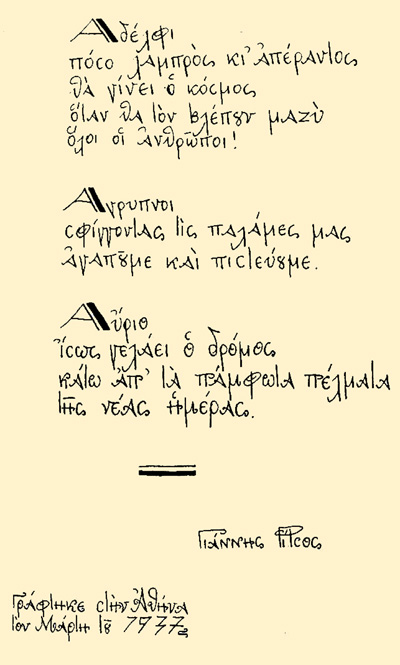 Ἀδέλφι
πόσο λαμπρὸς κι' ἀπέραντος
θὰ γίνει ὁ κόσμος
ὅταν θα τὸν βλέπουν μαζὺ
ὅλοι οἱ ἄνθρωποι!
Ἄγρυπνοι
σφίγγοντας τὶς παλάμες μας
ἀγαποῦμε καὶ πιστεύουμε.
Αὔριο
ἴσως γελάει ὁ δρόμος
κάτω ἀπ' τὰ πάμφωτα πέλματα
τῆς νέας ἡμέρας.
Γιάννης Ρίτσος
Γράφτηκε στὴν Ἀθήνα
τὸν Μάρτη τοῦ 1937